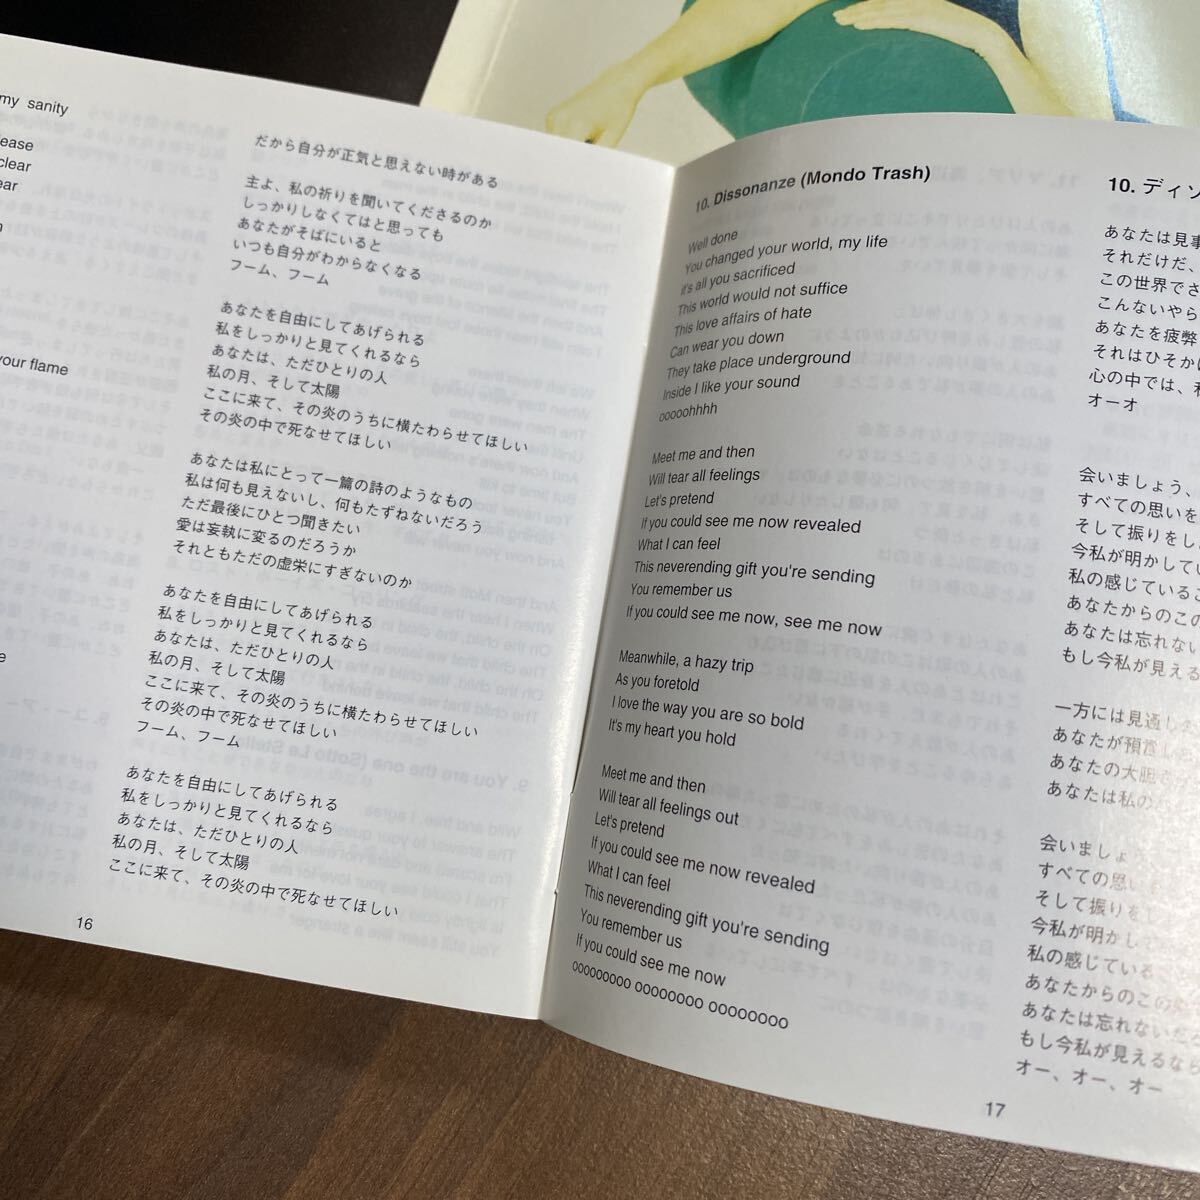 my sanity
clear
your flame
だから自分が正気と思えない時がある
主よ、私の祈りを聞いてくださるのか
しっかりしなくてはと思っても
あなたがそばにいると
いつも自分がわからなくなる
フーム、フーム
あなたを自由にしてあげられる
私をしっかりと見てくれるなら
あなたは、ただひとりの人
私の月、そして太陽
ここに来て、その炎のうちに横たわらせてほしい
その炎の中で死なせてほしい
あなたは私にとって一篇の詩のようなもの
私は何も見えないし、何もたずねないだろう
ただ最後にひとつ聞きたい
愛は妄執に変るのだろうか
それともただの虚栄にすぎないのか
あなたを自由にしてあげられる
私をしっかりと見てくれるなら
あなたは、ただひとりの人
私の月、そして太陽
ここに来て、その炎のうちに横たわらせてほしい
その炎の中で死なせてほしい
フーム、フーム
あなたを自由にしてあげられる
私をしっかりと見てくれるなら
あなたは、ただひとりの人
私の月、そして太陽
ここに来て、その炎の中で死なせてほしい
16
10. Dissonanze (Mondo Trash)
Well done
You changed your world, my life
it's all you sacrificed
This world would not suffice
This love affairs of hate
Can wear you down
They take place underground
Inside I like your sound
ooooohhhh
Meet me and then
Will tear all feelings
Let's pretend
If you could see me now revealed
What I can feel
This neverending gift you're sending
You remember us
If you could see me now, see me now
Meanwhile, a hazy trip
As you foretold
I love the way you are so bold
It's my heart you hold
Meet me and then
Will tear all feelings out
Let's pretend
If you could see me now revealed
What I can feel
This neverending gift you're sending
You remember us
If you could see me now
ooooooooo oooooooo oooooooo
10. ディソ
あなたは見事
それだけだ、
この世界でさ
こんないやら
あなたを疲弊
それはひそか
心の中では、私
オーオ
会いましょう、
すべての思いを
そして振りをし
今私が明かしてい
私の感じているこ
あなたからのこの
あなたは忘れない
もし今私が見える
一方には見通し
あなたが預言し
あなたの大胆
あなたは私の
会いましょ
すべての思い
そして振りをし
今私が明かして
私の感じているこ
あなたからのこの
あなたは忘れない
もし今私が見えるなら
オー、オー、オー
17